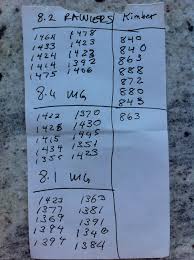 8.2 RAWLERS Kimber
1464 1478 840
1433 1423 840
1424 1423 863
1424 1392 888
1475 1406 872
880
843
8.4 MG
1422 1370 863
1428 1430
1415 1445
1434 1351
1355 1423
8.1 MG
1423 1363
1377 1381
1369 1391
1384 1340
1397 1384